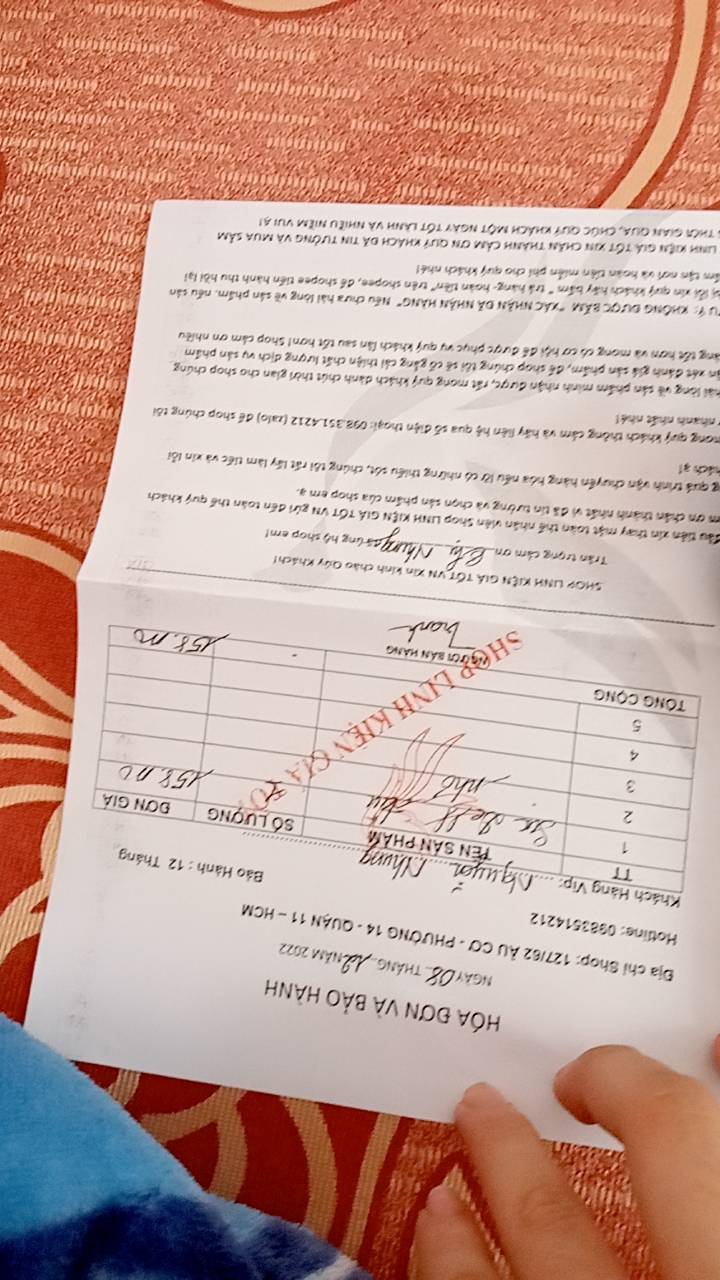 HÓA ĐƠN VÀ BẢO HÀNH
NGÀY 08 THÁNG 12 NĂM 2022
Địa chỉ Shop: 127/62 ÂU CƠ - PHƯỜNG 14 - QUẬN 11 - HCM
Hotline: 0983514212
Khách Hàng Vip: Nguyễn Nhung Bảo Hành : 12 Tháng
TT TÊN SẢN PHẨM SỐ LƯỢNG ĐƠN GIÁ
1
2
3
4
5
TỔNG CỘNG
NGƯỜI BÁN HÀNG
SHOP LINH KIỆN GIÁ TỐT
SHOP LINH KIỆN GIÁ TỐT VN xin kính chào Qúy Khách!
Trân trọng cảm ơn Chị Nhung đã ủng hộ shop em!
đầu tiên xin thay mặt toàn thể nhân viên Shop LINH KIỆN GIÁ TỐT VN gửi đến toàn thể quý khách
ơn chân thành nhất vì đã tin tưởng và chọn sản phẩm của shop em ạ.
quá trình vận chuyển hàng hóa nếu lỡ có những thiếu sót, chúng tôi rất lấy làm tiếc và xin lỗi
ạ!
mong quý khách thông cảm và hãy liên hệ qua số điện thoại: 098.351.4212 (zalo) để shop chúng tôi
nhanh nhất nhé!
hài lòng về sản phẩm mình nhận được, rất mong quý khách dành chút thời gian cho shop chúng
xét đánh giá sản phẩm, để shop chúng tôi sẽ cố gắng cải thiện chất lượng dịch vụ sản phẩm
tốt hơn và mong có cơ hội để được phục vụ quý khách lần sau tốt hơn! Shop cám ơn nhiều
Ý: KHÔNG ĐƯỢC BẤM "XÁC NHẬN ĐÃ NHẬN HÀNG" Nếu chưa hài lòng về sản phẩm. nếu sản
lỗi xin quý khách hãy bấm " trả hàng- hoàn tiền" trên shopee, để shopee tiến hành thu hồi lại
tận nơi và hoàn tiền miễn phí cho quý khách nhé!
LINH KIỆN GIÁ TỐT XIN CHÂN THÀNH CẢM ƠN QUÝ KHÁCH ĐÃ TIN TƯỞNG VÀ MUA SẮM
THỜI GIAN QUA, CHÚC QUÝ KHÁCH MỘT NGÀY TỐT LÀNH VÀ NHIỀU NIỀM VUI Ạ!